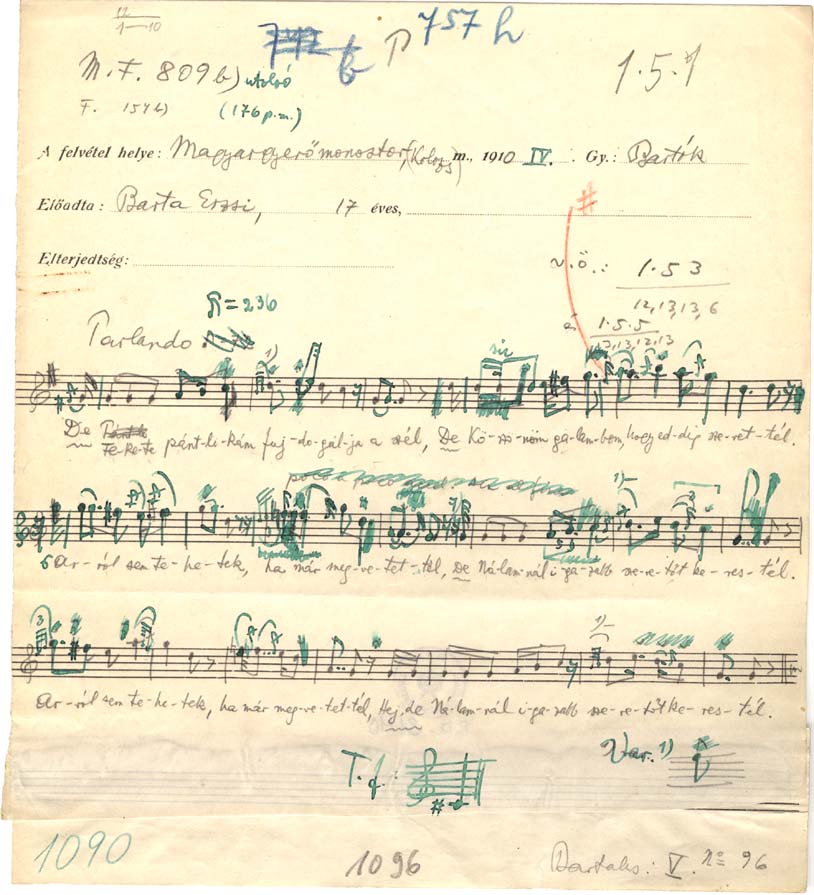 12
1—10
P 757 h
M.F. 809 b) utolsó
1.5.1
F. 154 b)
(176 p.m.)
A felvétel helye: Magyargyerőmonostor, (Kolozs) m., 1910 IV. Gy.: Bartók
Előadta: Barta Erzsi, 17 éves,
Elterjedtség:
v.ö.: 1.5 3
12,13,13,6
1.5.5
13,13,12,13
= 236
Parlando
De Fe-ke-te pánt-li-kám fuj-do-gál-ja a szél, De Kö-szö-nöm ga-lam-bom, hogy ed-dig sze-ret-tél.
Ar-ról sem te-he-tek, ha már meg-ve-tet-tél, De Ná-lam-nál i-ga-zabb sze-re-tőt ke-res-tél.
3
Ar-ról sem te-he-tek, ha már meg-ve-tet-tél, Hej, de Ná-lam-nál i-ga-zabb sze-re-tőt ke-res-tél.
T. f.:
Var. 1)
1090
1096
V. No 96